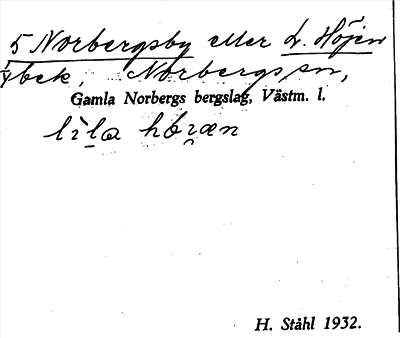 5 Norbergsby eller L. Höjen
ÿbek, Norbergs sn,
Gamla Norbergs bergslag, Västm. l.
lìla höjæn
H. Ståhl 1932.